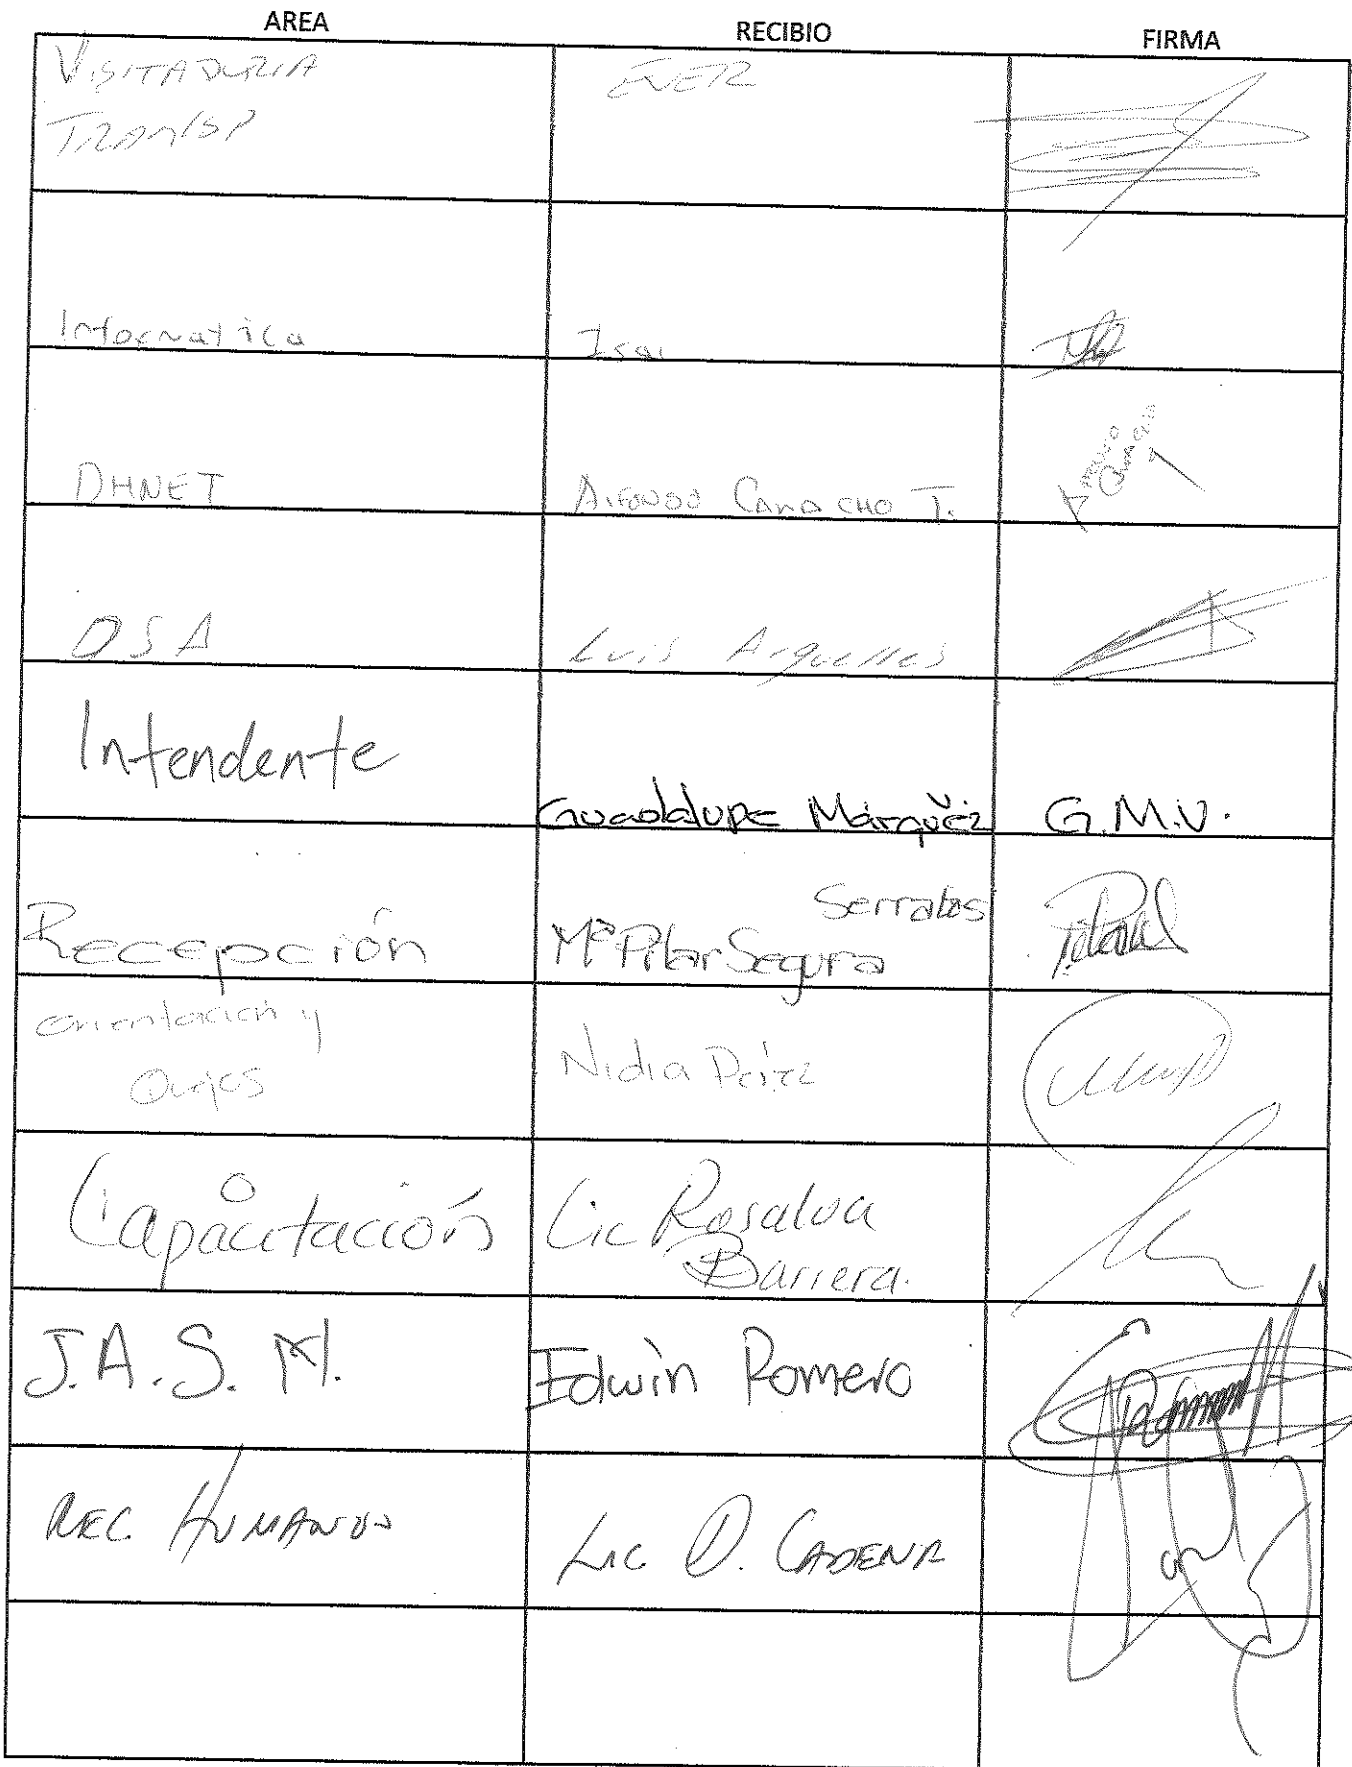 AREA RECIBIO FIRMA
VISITADURIA ENER
TRANSP
Informatica Isai
DHNET Alfonso Camacho T.
DSA Luis Arguelles
Intendente
Guadalupe Márquez G.M.V.
Serratos
Recepción Mª Pilar Segura
Orientación y
Quejas Nidia Pérez
Capacitación Lic Rosalva
Barrera.
J.A.S.M. Edwin Romero
REC. HUMANOS Lic D. CADENA